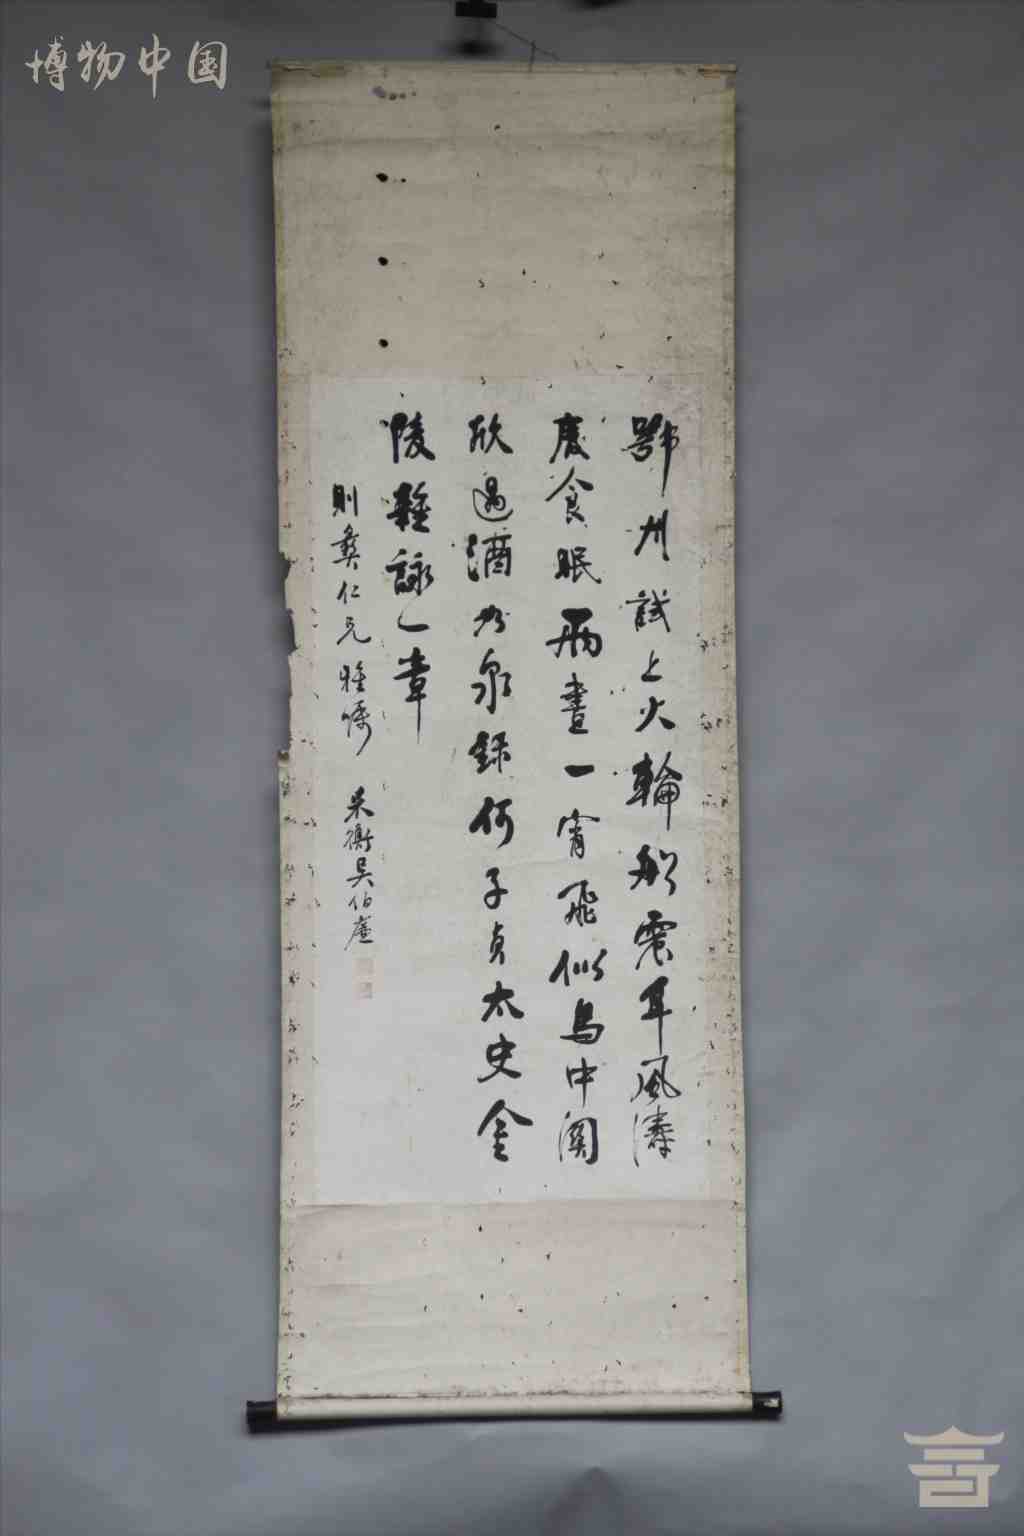 博物中国
鄂州試上火輪船震耳風濤
廢食眠兩晝一宵飛似鳥中閑
欣過酒如泉録何子貞太史金
陵雜詠一章
則彝仁兄雅
吳伯庵